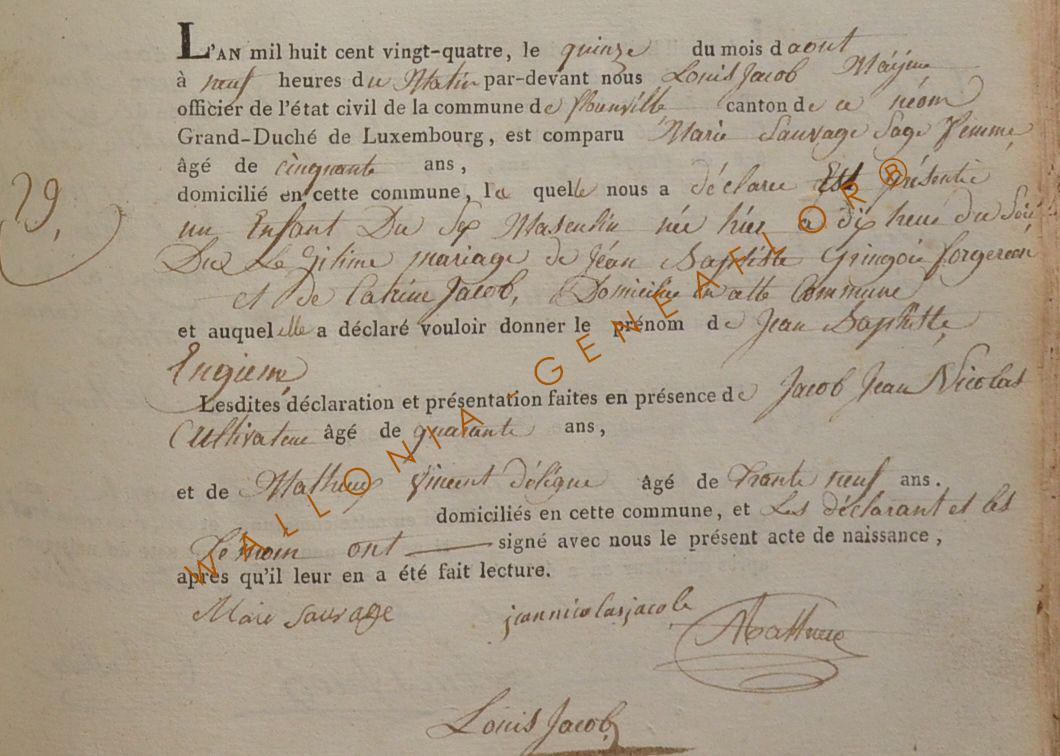 L'AN mil huit cent vingt-quatre, le quinze du mois d aout
à neuf heures du Matin par-devant nous Louis Jacob Mayeur
officier de l'état civil de la commune de canton de ce néom
Grand-Duché de Luxembourg, est comparu Marie Sauvage Sage femme,
âgé de cinquante ans,
29,
domicilié en cette commune, la quelle nous a déclaree Est présentie
un Enfant Du Sex Masculin née hier a dix heure du Soir
Du Legitime mariage de Jéan Baptiste Gringoie forgeron
et de Catrine Jacob, Domicilie en cette Commune
et auquel elle a déclaré vouloir donner le prénom de Jean Baptiste,
Engiene,
Lesdites déclaration et présentation faites en présence de Jacob Jean Nicolas
Cultivateur âgé de quarante ans,
et de Mathieu Vincent déléguée âgé de Trante neuf ans.
domiciliés en cette commune, et Les déclarant et les
Témoin ont signé avec nous le présent acte de naissance,
après qu'il leur en a été fait lecture.
Marie Sauvage jeannicolasjacob Mathieu
Louis Jacob
WALLONIA-GENEAFLORB